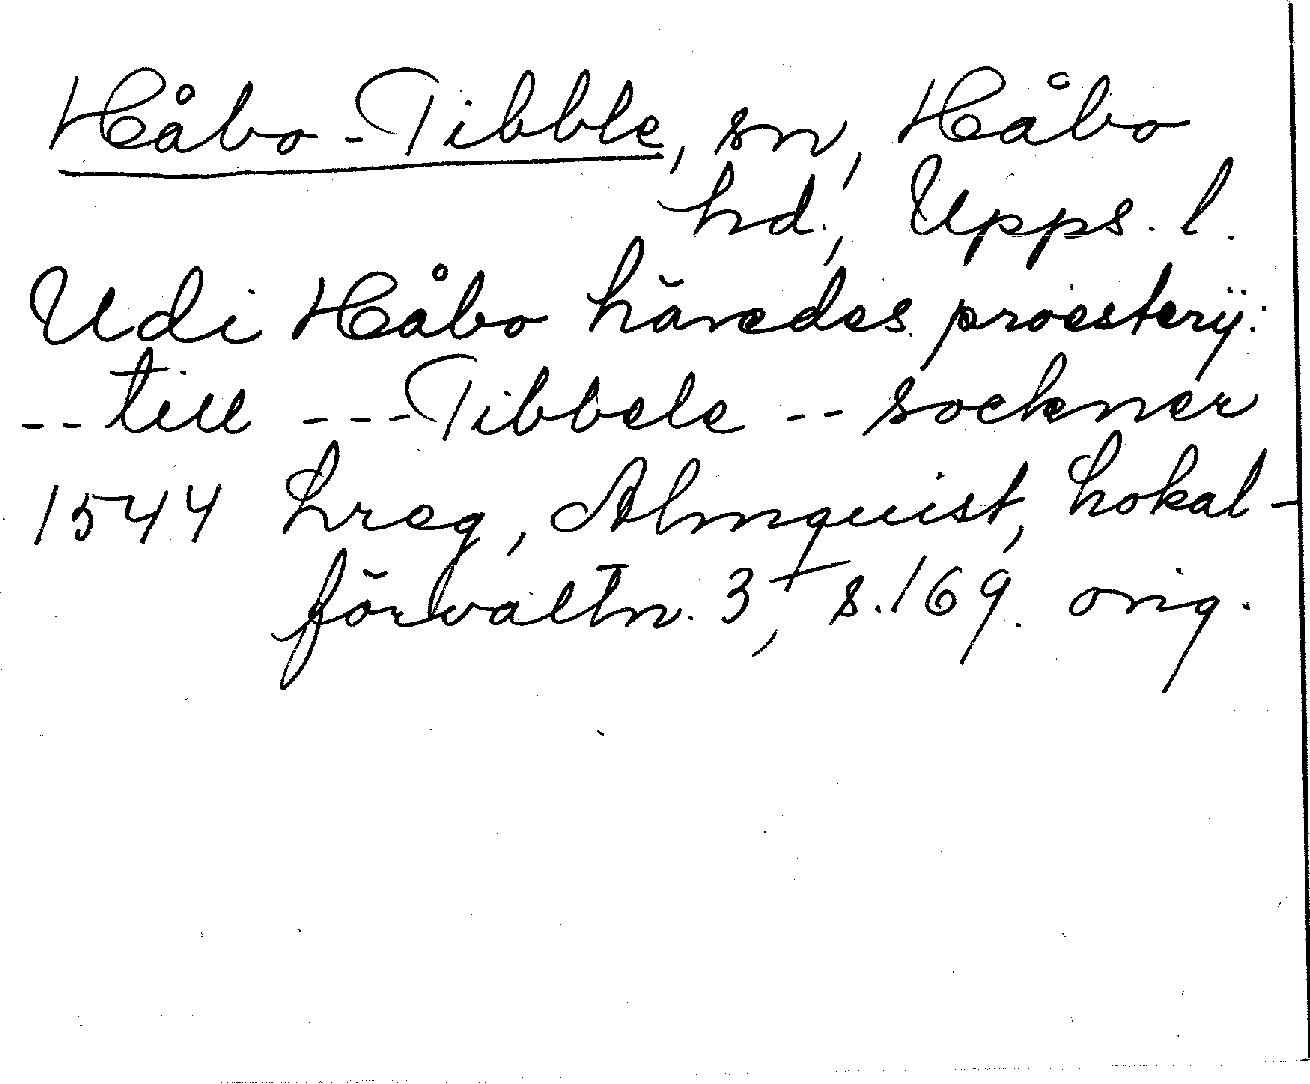 Håbo-Tibble, sn, Håbo
hd., Upps. l.
Udi Håbo häredes proesterij:
-- till --- Tibbele -- sockner
1544 Lreg, Almquist, Lokal-
förvaltn. 3, s. 169. orig.